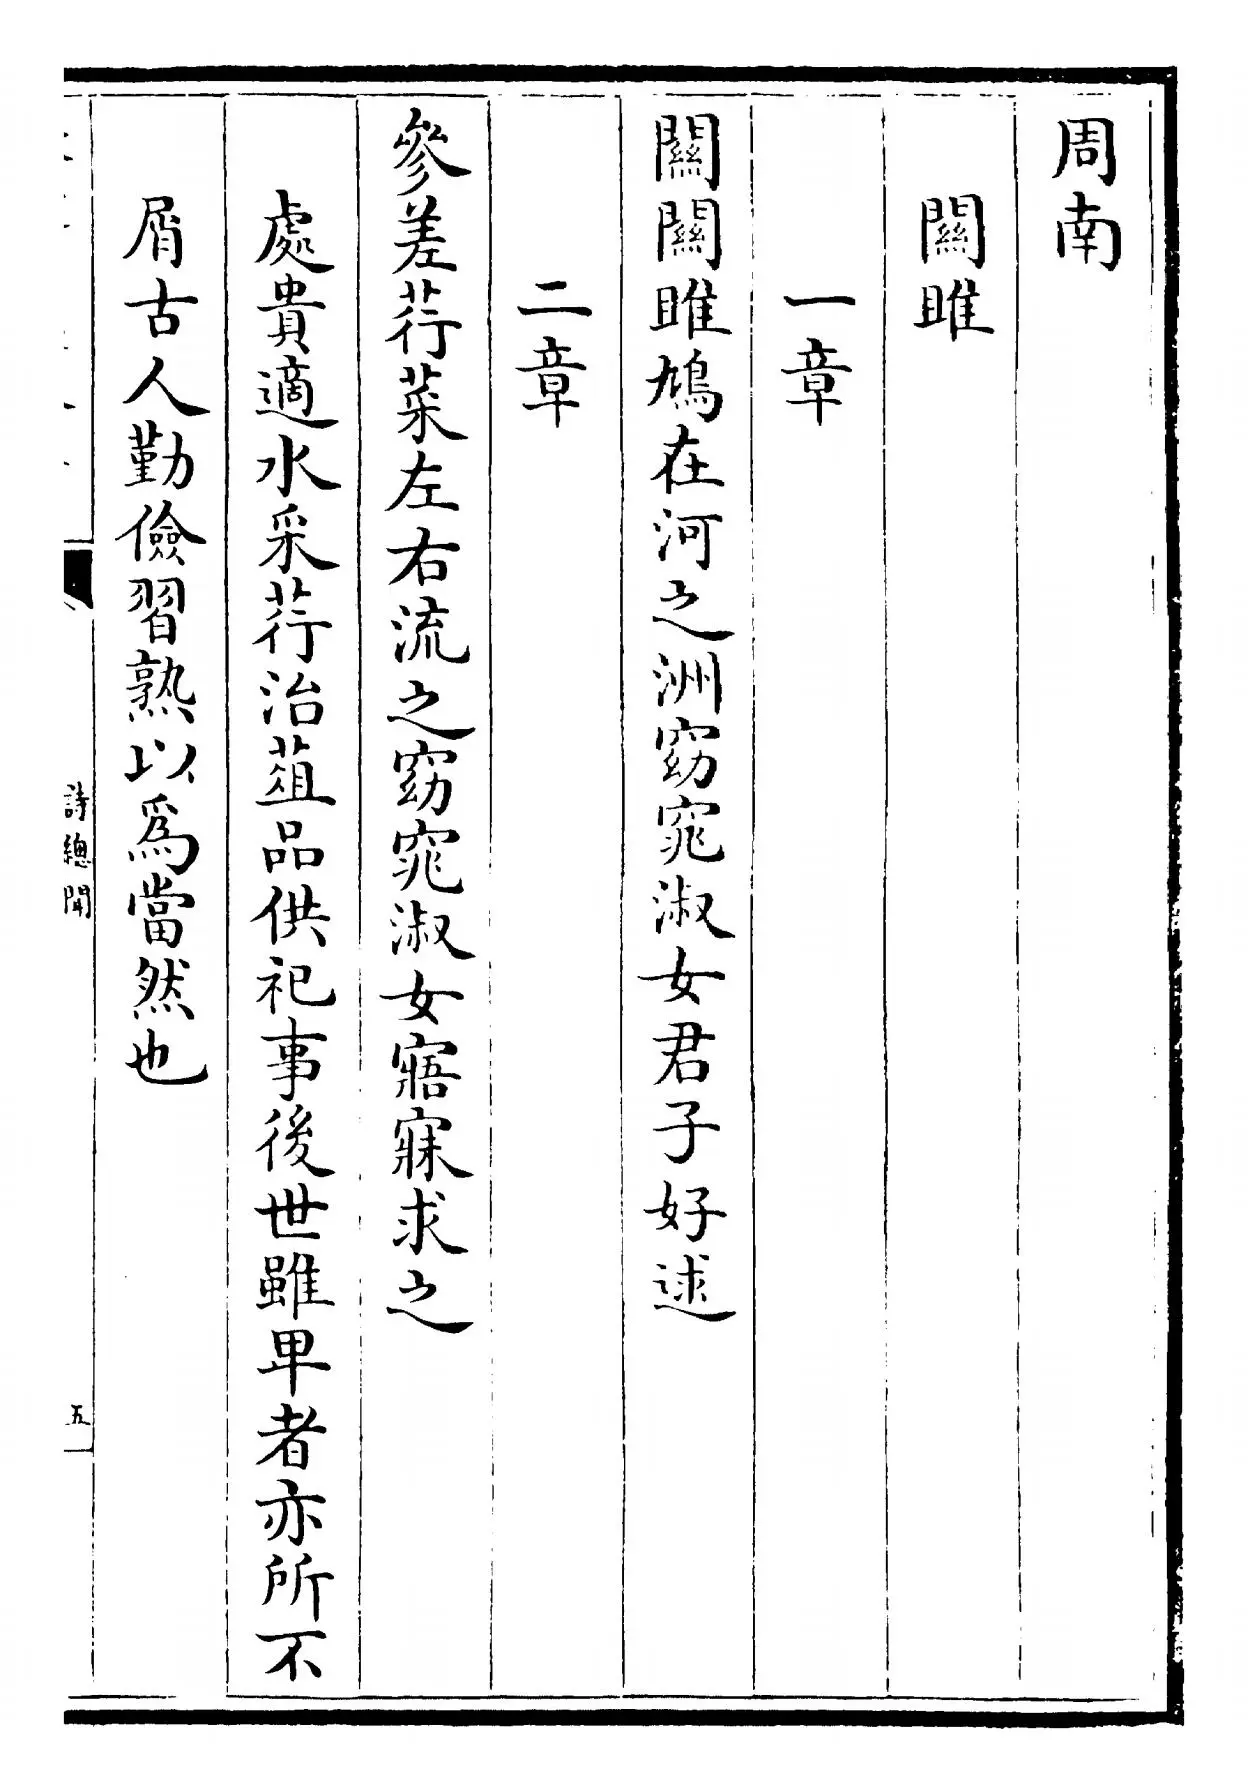 周南
關雎
一章
關關雎鳩在河之洲窈窕淑女君子好逑
二章
參差荇菜左右流之窈窕淑女寤寐求之
處貴適水采荇治葅品供祀事後世雖卑者亦所不
屑古人勤儉習熟以為當然也
詩總聞
五